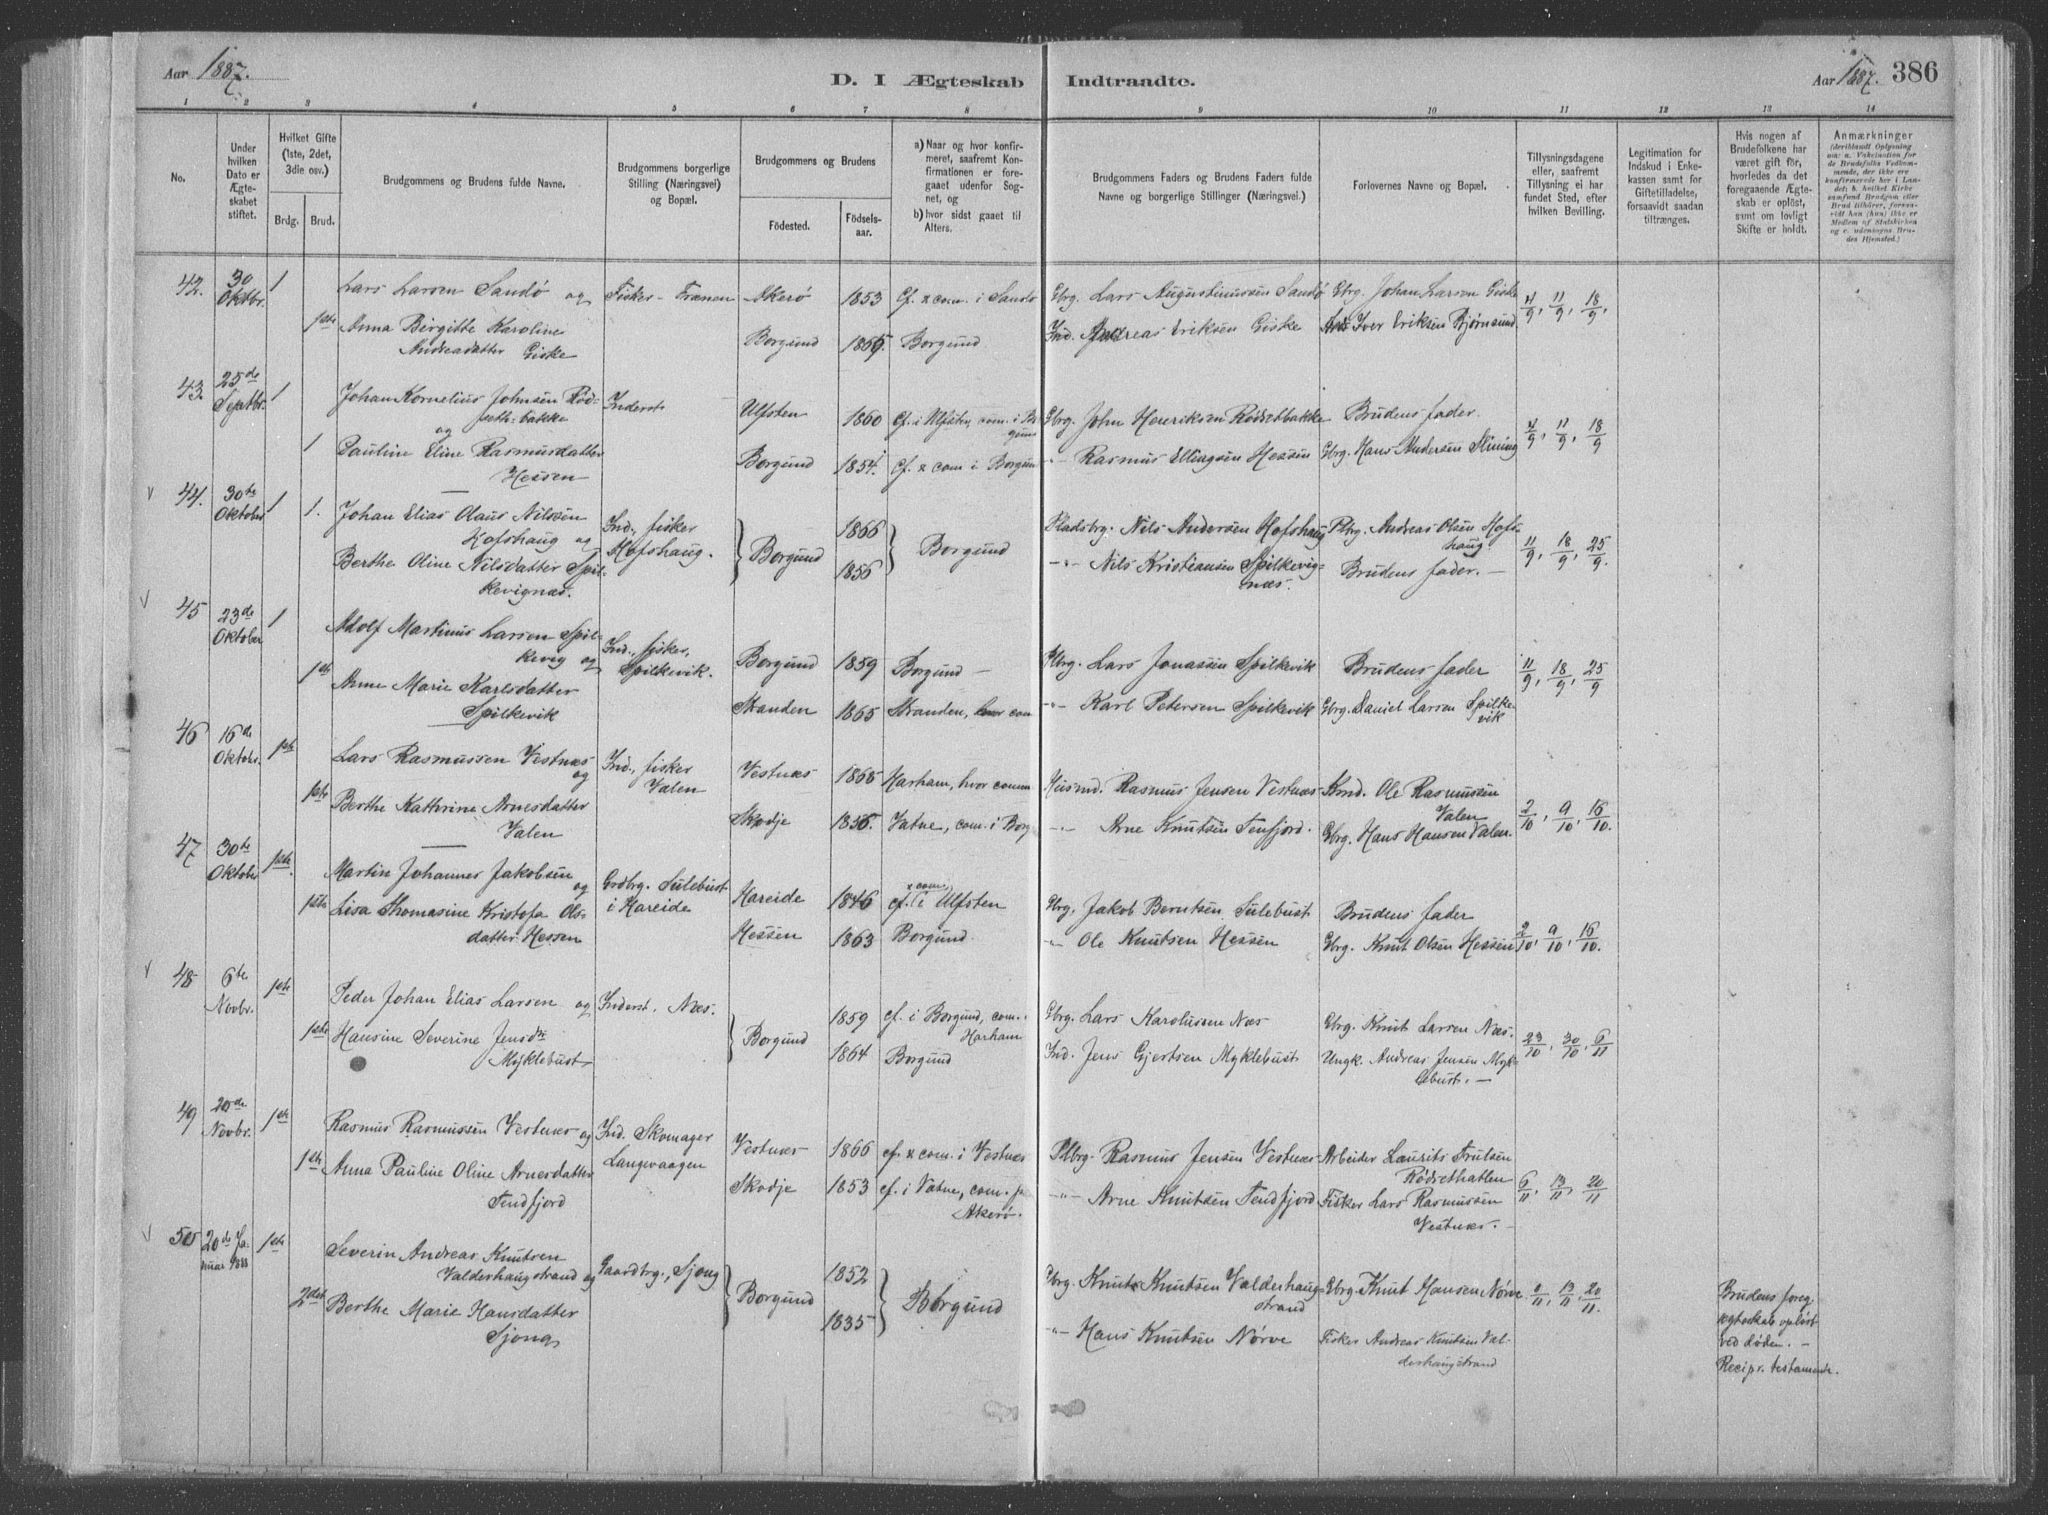 Aar 1887.
D. I Ægteskab Indtraadte.
Aar 1887. 386
1 2 3 4 5 6 7 8 9 10 11 12 13 14
No.
Under hvilken Dato er Ægteskabet stiftet.
Hvilket Gifte (1ste, 2det, 3die osv.)
Brdg. Brud.
Brudgommens og Brudens fulde Navne.
Brudgommens borgerlige Stilling (Næringsvei) og Bopæl.
Brudgommens og Brudens
Födested. Födsels-aar.
a) Naar og hvor konfirmeret, saafremt Konfirmationen er foregaaet udenfor Sognet, og
b) hvor sidst gaaet til Alters.
Brudgommens Faders og Brudens Faders fulde Navne og borgerlige Stillinger (Næringsvei.)
Forlovernes Navne og Bopæl.
Tillysningsdagene eller, saafremt Tillysning ei har fundet Sted, efter hvilken Bevilling.
Legitimation for Indskud i Enkekassen samt for Giftetilladelse, forsaavidt saadan tiltrænges.
Hvis nogen af Brudefolkene har været gift för, hvorledes da det foregaaende Ægteskab er oplöst, samt om lovligt Skifte er holdt.
Anmærkninger (deriblandt Oplysning om: a. Vakcination for de Brudefolks Vedkommende, der ikke ere konfirmerede her i Landet; b. hvilket Kirkesamfund Brudgom eller Brud tilhörer, forsaavidt han (hun) ikke er Medlem af Statskirken og c. udensogns Brudes Hjemsted.)
42. 30 Oktbr. 1 Lars Larsen Sandö og Fisker - Frænen Akerö 1853 Cf. & com. i Sandö Gbrg. Lars Augustinussen Sandö Gbrg. Johan Larsen Giske 4/9, 11/9, 18/9.
1ste Anna Birgitte Karoline Andreadatter Giske Borgund 1865. Borgund Ind. Andreas Eriksen Giske Iver Eriksen Bjørnsund
43. 25de Septbr. 1 Johan Kornelius Johnsen Rödseth-bakke og Inderst Ulfsten 1860 Cf. i Ulfsten, com. i Borgund Gbrg. John Henriksen Rödsetbakke Brudens fader. 4/9, 11/9, 18/9
1 Pauline Eline Rasmusdatter Hessen Borgund 1854. cf. & com. i Borgund -"- Rasmus Ellingsen Hessen Gbrg. Hans Andersen Slining
44. 30te Oktober 1 1. Johan Elias Olaus Nilssen Hofshaug og Ind., fisker Hofshaug. Borgund 1866 Borgund Pladsbrg. Nils Andersen Hofshaug Plbrg. Andreas Olsen Hofshaug 11/9, 18/9, 25/9.
Berthe Oline Nilsdatter Spilkevignæs. 1856 -"- Nils Kristiansen Spilkevignæs. Brudens fader. -
45 23de Oktober 1 Adolf Martinus Larsen Spilkevig og Ind., fisker, Spilkevik. Borgund 1859 Borgund - Plbrg. Lars Jonassen Spilkevik Brudens fader 11/9, 18/9, 25/9
1ste Anne Marie Karlsdatter Spilkevik Stranden 1865 Stranden, hvor com -"- Karl Petersen Spilkevik Gbrg. Daniel Larsen Spilkevik
46 16de Oktobr. 1ste Lars Rasmussen Vestnæs og Ind., fisker Valen Vestnæs 1865 Harham, hvor comm Husmd. Rasmus Jensen Vestnæs Kmd. Ole Rasmussen Valen 2/10, 9/10, 16/10.
1ste Berthe Kathrine Arnesdatter Valen Skodje 1856. Vatne, com. i Borg -"- Arne Knutsen Tenfjord. Gbrg. Hans Hansen Valen.
47 30te Oktobr 1ste. Martin Johannes Jakobsen og Grdbrg. Sulebust i Hareide Hareide 1846 cf. & com. i Ulfsten Gbrg. Jakob Berntsen Sulebust Brudens fader 2/10, 9/10, 16/10.
1ste Lisa Thomasine Kristofa Olsdatter Hessen Hessen 1863 Borgund. -"- Ole Knutsen Hessen Gbrg. Knut Olsen Hessen
48 6te Novbr. 1ste Peder Johan Elias Larsen og Inderst. Næs. Borgund 1859 cf. i Borgund, com. i Harham Gbrg. Lars Karolussen Næs Gbrg. Knut Larsen Næs. 23/10, 30/10, 6/11
1ste Hansine Severine Jensdtr Myklebust 1864 Borgund Ind. Jens Gjertsen Myklebust Ungk. Andreas Jensen Myklebust. -
49 20de Novbr. 1ste Rasmus Rasmussen Vestnæs og Ind. Skomager Langevaagen Vestnæs 1866 cf. & com. i Vestnæs Plbrg. Rasmus Jensen Vestnæs Arbeider Laurits Trulsen Rødsethatlen 6/11, 13/11, 20/11
1ste Anna Pauline Oline Arnesdatter Tendfjord Skodje 1853 cf. i Vatne, com. p Akerö. -"- Arne Knutsen Tendfjord Fisker Lars Rasmussen Vestnæs. -
50 20de Januar 1888 1ste Severin Andreas Knutsen Valderhaugstrand og Gaardbrg., Sjong Borgund 1852 Borgund Gbrg. Knut Knutsen Valderhaugstrand Gbrg. Knut Hansen Nørve 6/11, 13/11, 20/11. Brudens foreg. ægteskab opløst ved døden. - Recipr. testamente.
2det Berthe Marie Hansdatter Sjong 1835 -"- Hans Knutsen Nørve Fisker Andreas Knutsen Valderhaugstrand